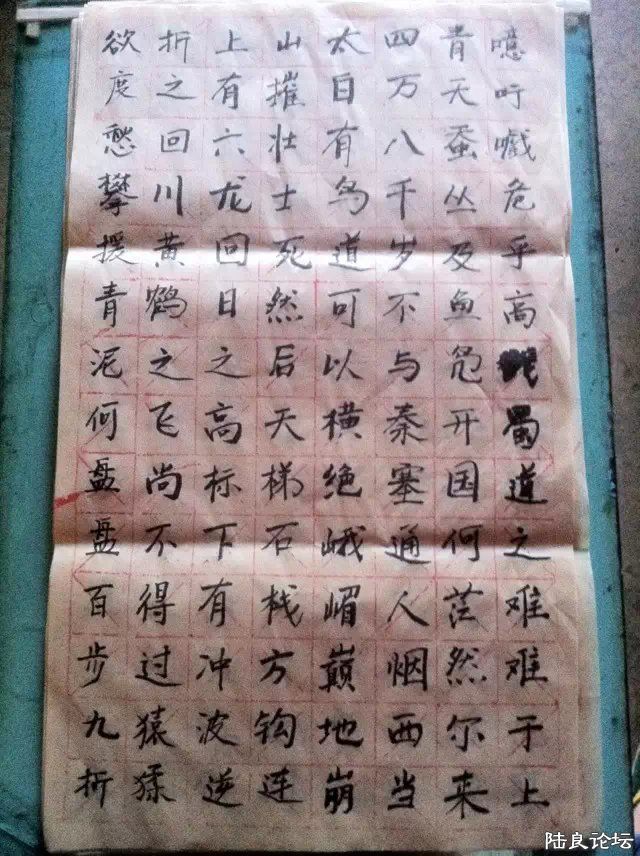 噫吁嚱危乎高蜀道之难难于上
青天蚕丛及鱼凫开国何茫然尔来
四万八千岁不与秦塞通人烟西当
太白有鸟道可以横绝峨嵋巅地崩
山摧壮士死然后天梯石栈方钩连
上有六龙回日之高标下有冲波逆
折之回川黄鹤之飞尚不得过猿猱
欲度愁攀援青泥何盘盘百步九折
陆良论坛